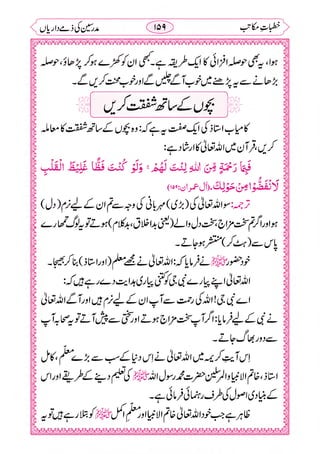 خطباتِ مکاتب ۱۵۹ مدرسین کی ذمے داریاں
ہوا، یہ بھی حوصلہ افزائی کا ایک طریقہ ہے۔ کبھی ان کو کھڑے ہو کر پڑھاؤ، حوصلہ
بڑھانے سے یہ پڑھنے میں خوب آگے چلیں گے اور خوب محنت کریں گے۔
بچوں کے ساتھ شفقت کریں
کامیاب استاذ کی ایک صفت یہ ہے کہ: وہ بچوں کے ساتھ شفقت کا معاملہ
کریں، قرآن میں اللہ تعالیٰ کا ارشاد ہے:
فَبِمَا رَحْمَةٍ مِّنَ اللهِ لِنْتَ لَهُمْ ۚ وَلَوْ كُنْتَ فَظًّا غَلِيْظَ الْقَلْبِ
لَا نْفَضُّوْا مِنْ حَوْلِكَ. (آل عمران: ۱۵۹)
ترجمہ: سو اللہ تعالیٰ کی (بڑی) مہربانی کی وجہ سے تم ان کے لیے نرم (دل)
ہو اور اگر تم سخت مزاج سخت دل والے (یعنی بد اخلاق، بد کلام) ہوتے تو وہ لوگ تمھارے
پاس سے (ہٹ کر) منتشر ہو جاتے۔
خود حضور ﷺ نے فرمایا کہ: اللہ تعالیٰ نے مجھے معلم (اور استاذ) بنا کر بھیجا۔
اللہ تعالیٰ اپنے پیارے نبی جی کو کتنی پیاری ہدایت دے رہے ہیں کہ:
اے نبی جی! اللہ کی رحمت سے آپ ان کے لیے نرم بنے ہیں اور آگے اللہ تعالیٰ
نے نبی کے لیے فرمایا: اگر آپ سخت مزاج ہوتے اور سختی سے پیش آتے تو یہ صحابہ آپ
کے پاس سے دور بھاگ جاتے۔
اس آیتِ کریمہ میں اللہ تعالیٰ نے اس دنیا کے سب سے بڑے معلّم، کامل
استاذ، خاتم الانبیا والمرسلین حضرت محمد رسول اللہ ﷺ کو تعلیم دینے کے طریقے اور اس
کے بنیادی اصول کی طرف رہنمائی فرمائی ہے۔
ظاہر ہے جب خود اللہ تعالیٰ خاتم الانبیا اور معلّم اکمل ﷺ کو بتلا رہے ہیں تو یہ